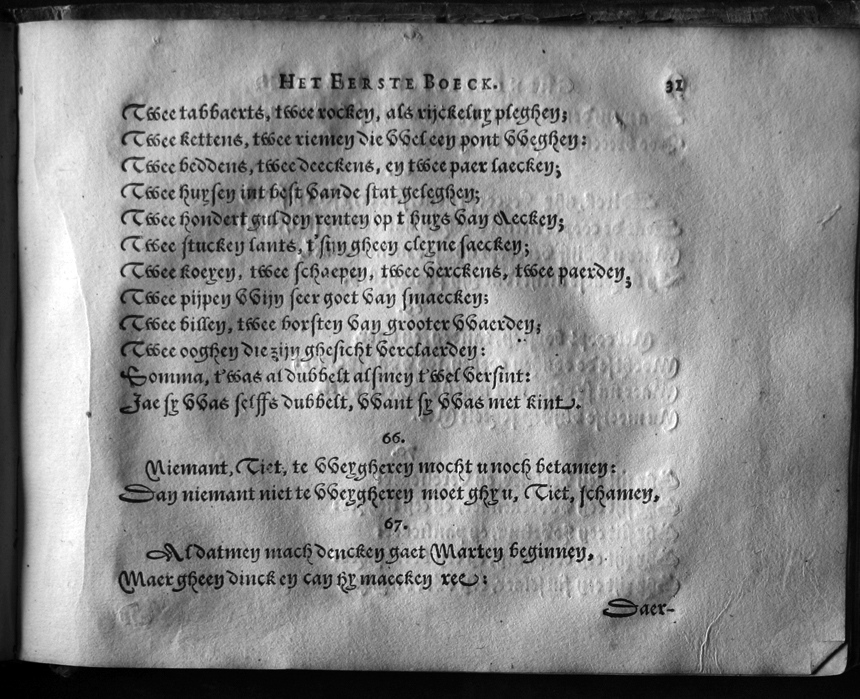 HET EERSTE BOECK. 31
Twee tabbaerts, twee rocken, als rijckeluy pleghen;
Twee kettens, twee riemen die VVel een pont VVeghen:
Twee beddens, twee deeckens, en twee paer laecken;
Twee huysen int best vande stat geleghen;
Twee hondert gulden renten op t huys van Aecken;
Twee stucken lants, t'sijn gheen cleyne saecken;
Twee koeyen, twee schaepen, twee verckens, twee paerden;
Twee pijpen VVijn seer goet van smaecken;
Twee billen, twee borsten van grooter VVaerden;
Twee ooghen die zijn ghesicht verclaerden:
Somma, t'was al dubbelt alsmen t'wel versint:
Jae sy VVas selffs dubbelt, VVant sy VVas met kint.
66.
Niemant, Tiet, te VVeygheren mocht u noch betamen:
Dan niemant niet te VVeygheren moet ghy u, Tiet, schamen.
67.
Al datmen mach dencken gaet Marten beginnen,
Maer gheen dinck en can hy maecken ree:
Daer-